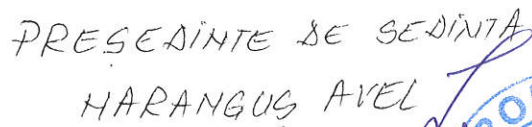 PRESEDINTE DE SEDINTA
HARANGUS AVEL
RO